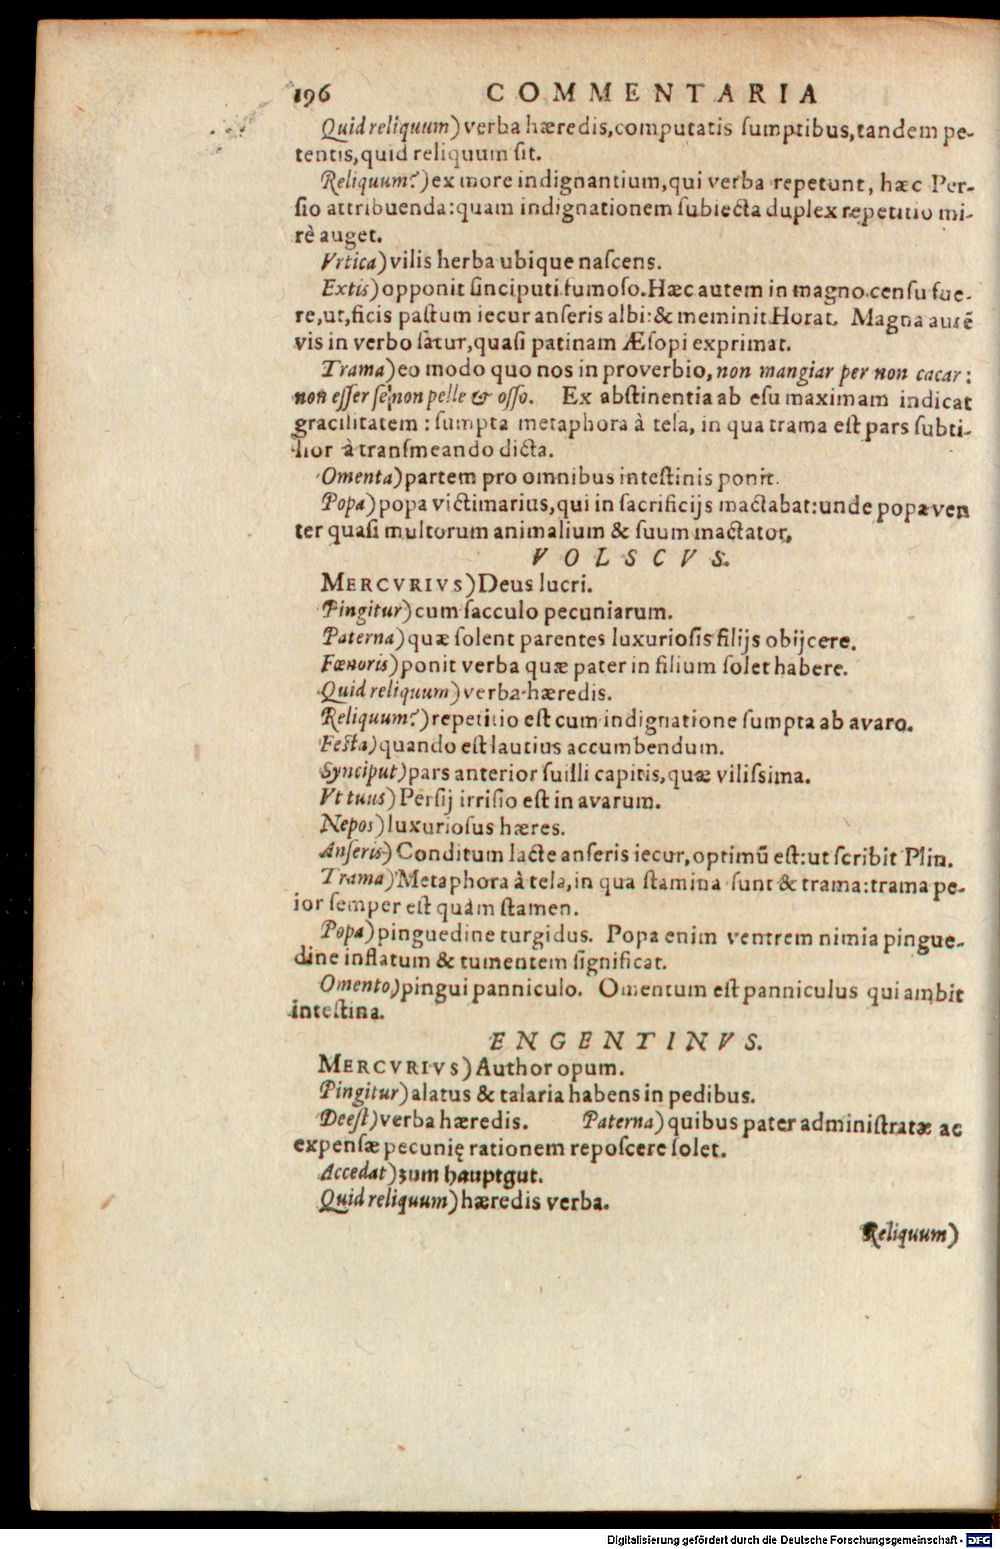 196 COMMENTARIA
Quid reliquum) verba hæredis, computatis sumptibus, tandem pe-
tentis, quid reliquum sit.
Reliquum?) ex more indignantium, qui verba repetunt, hæc Per-
sio attribuenda: quam indignationem subiecta duplex repetitio mi-
rè auget.
Vrtica) vilis herba ubique nascens.
Extis) opponit sinciputi fumoso. Hæc autem in magno censu fue-
re, ut, ficis pastum iecur anseris albi: & meminit Horat. Magna autē
vis in verbo satur, quasi patinam Æsopi exprimat.
Trama) eo modo quo nos in proverbio, non mangiar per non cacar:
non esser se non pelle & osso. Ex abstinentia ab esu maximam indicat
gracilitatem: sumpta metaphora à tela, in qua trama est pars subti-
lior à transmeando dicta.
Omenta) partem pro omnibus intestinis ponit.
Popa) popa victimarius, qui in sacrificijs mactabat: unde popa ven
ter quasi multorum animalium & suum mactator.
VOLSCVS.
MERCVRIVS) Deus lucri.
Pingitur) cum sacculo pecuniarum.
Paterna) quæ solent parentes luxuriosis filijs obijcere.
Fœnoris) ponit verba quæ pater in filium solet habere.
Quid reliquum) verba hæredis.
Reliquum?) repetitio est cum indignatione sumpta ab avaro.
Festa) quando est lautius accumbendum.
Synciput) pars anterior suilli capitis, quæ vilissima.
Vt tuus) Persij irrisio est in avarum.
Nepos) luxuriosus hæres.
Anseris) Conditum lacte anseris iecur, optimū est: ut scribit Plin.
Trama) Metaphora à tela, in qua stamina sunt & trama: trama pe-
ior semper est quàm stamen.
Popa) pinguedine turgidus. Popa enim ventrem nimia pingue-
dine inflatum & tumentem significat.
Omento) pingui panniculo. Omentum est panniculus qui ambit
intestina.
ENGENTINVS.
MERCVRIVS) Author opum.
Pingitur) alatus & talaria habens in pedibus.
Deest) verba hæredis. Paterna) quibus pater administratæ ac
expensæ pecunię rationem reposcere solet.
Accedat) zum hauptgut.
Quid reliquum) hæredis verba.
Reliquum)
Digitalisierung gefördert durch die Deutsche Forschungsgemeinschaft - DFG